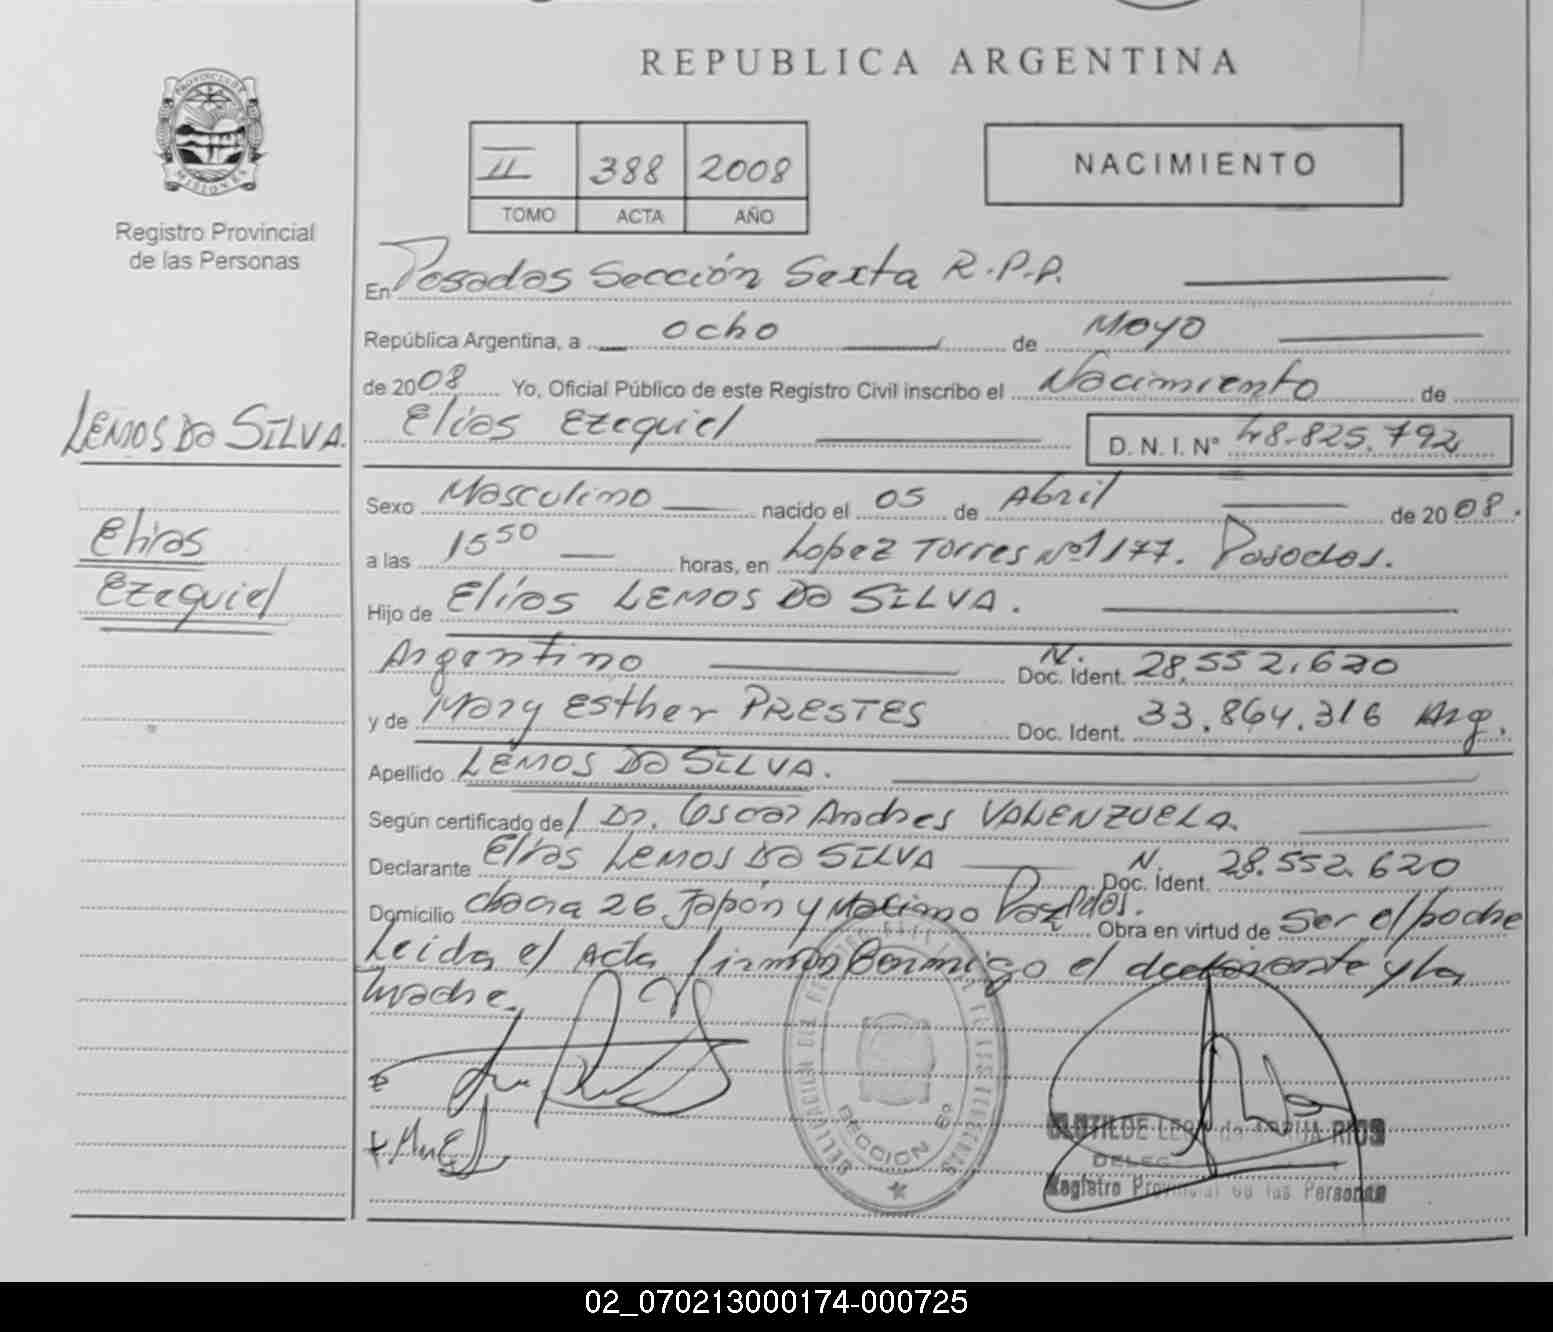 REPUBLICA ARGENTINA
PROVINCIA DE
MISIONES
Registro Provincial
de las Personas
II 388 2008
TOMO ACTA AÑO
NACIMIENTO
En Posadas Sección Sexta R.P.P.
República Argentina, a ocho de Mayo
de 2008 Yo, Oficial Público de este Registro Civil inscribo el Nacimiento de
Elías Ezequiel D. N. I. Nº 48.825.792
LEMOS DA SILVA.
Elías
Ezequiel
Sexo Masculino nacido el 05 de Abril de 2008.
a las 15 50 horas, en Lopez Torres Nº 1177. Posadas.
Hijo de Elías LEMOS DA SILVA.
Argentino N. Doc. Ident. 28.552.620
y de Mary Esther PRESTES Doc. Ident. 33.864.316 Arg.
Apellido LEMOS DA SILVA.
Según certificado de/ Dr. Oscar Andres VALENZUELA.
Declarante Elías LEMOS DA SILVA N. Doc. Ident. 28.552.620
Domicilio chacra 26 Japón y Posadas. Obra en virtud de Ser el padre
Leida el Acta firman Conmigo el declarante y la
madre.
SECCION 6º
CLOTILDE RIOS
Registro Provincial de las Personas
02_070213000174-000725